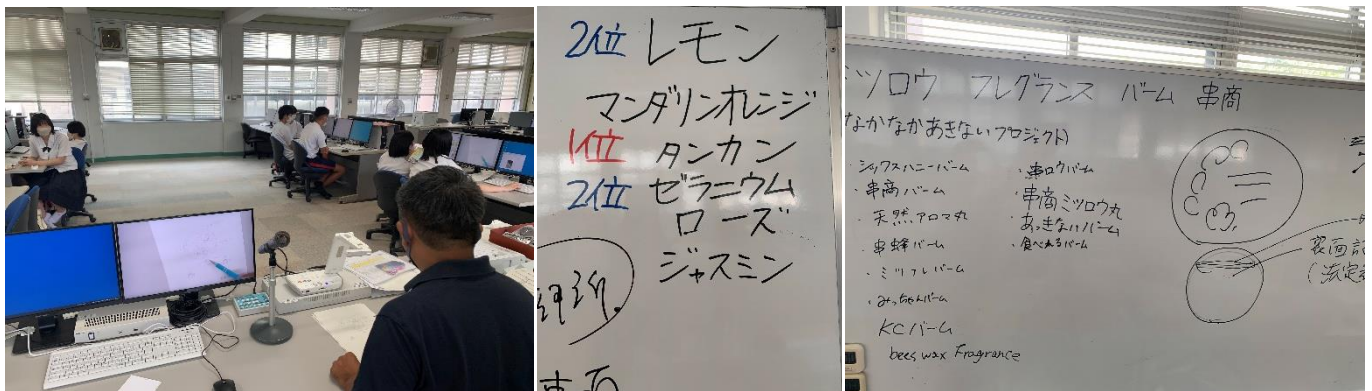 2位 レモン
マンダリンオレンジ
1位 タンカン
2位 ゼラニウム
ローズ
ジャスミン
ミツロウ フレグランス バーム 串商
なかなかあきないプロジェクト)
・シックスハニーバーム
・串商バーム
・天然アロマ丸
・串蜂バーム
・ミツフルバーム
・みっちゃんバーム
KCバーム
bees wax Fragrance
・串ロウバーム
・串商ミツロウ丸
・あっきないバーム
・食べれるバーム
裏面